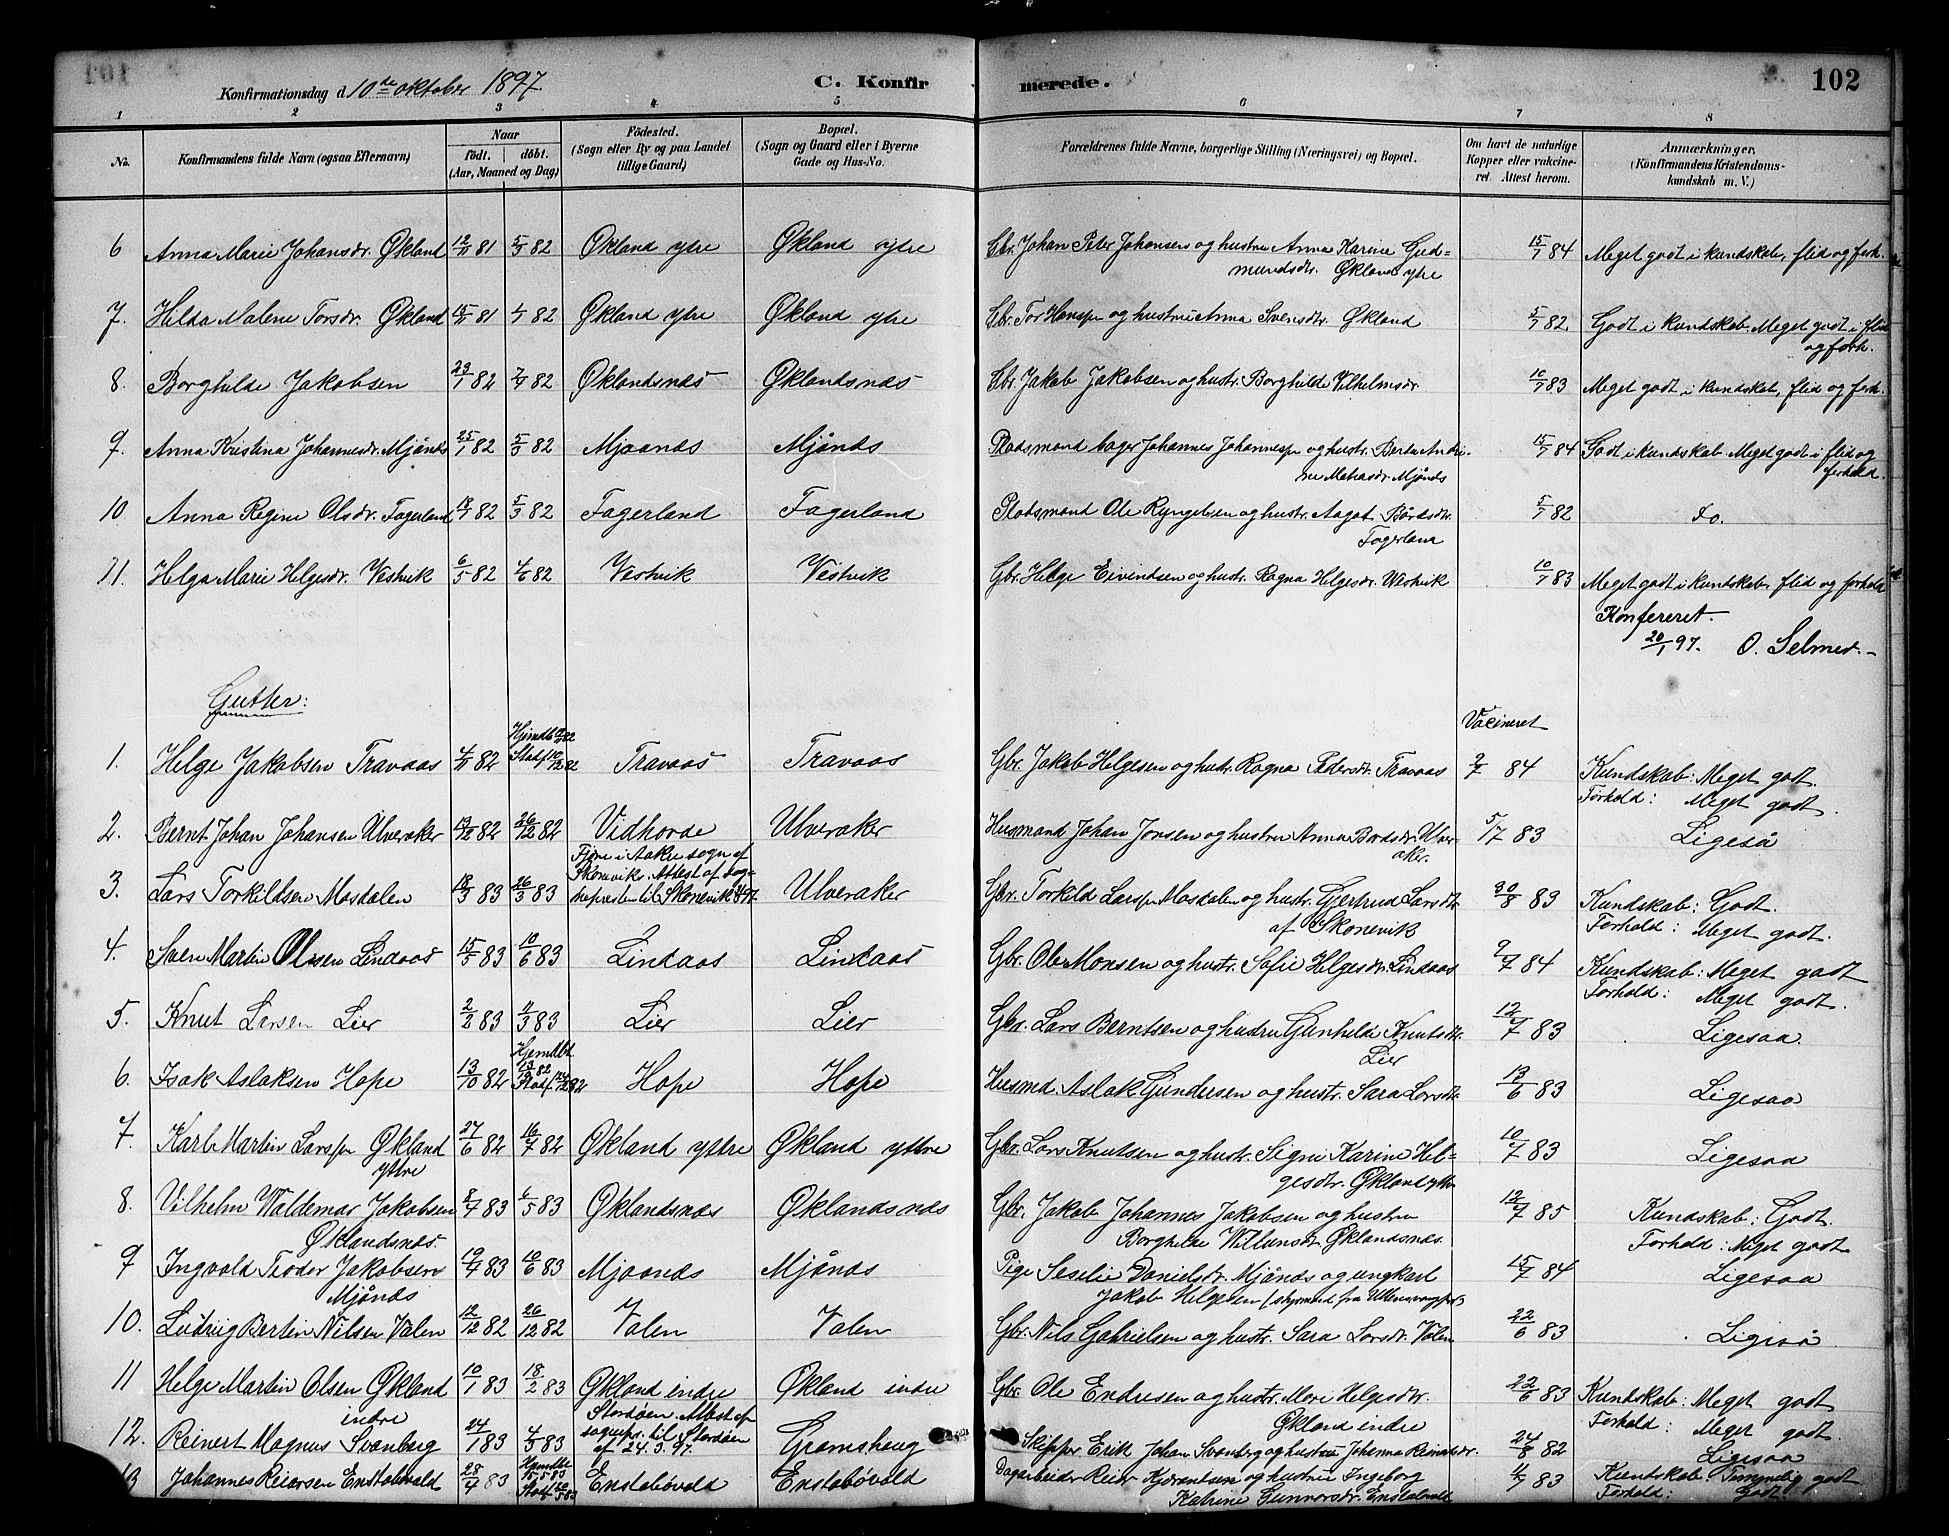 Konfirmationsdag d. 10de oktober 1897. C. Konfirmerede. 102
1 2 3 4 5 6 7 8
No. Konfirmandens fulde Navn (ogsaa Efternavn) Naar födt. döbt. (Aar, Maaned og Dag) Födested. (Sogn eller By og paa Landet tillige Gaard) Bopæl. (Sogn og Gaard eller i Byerne Gade og Hus-No. Forældrenes fulde Navne, borgerlige Stilling (Næringsvei) og Bopæl. Om havt de naturlige Kopper eller vakcineret. Attest herom. Anmærkninger, (Konfirmandens Kristendomskundskab m. V.)
6 Anna Marie Johansdr. Økland 12/11 81 5/3 82 Økland ytre Økland ytre Gbr. Johan Peter Johansen og hustru Anna Karine Gud- 15/7 84 Meget godt i kundskab, flid og forh.
mundsdr. Økland ytre
7. Hilda Malene Torsdr. Økland 15/11 81 1/1 82 Økland ytre Økland ytre Gbr. Tor Hansen og hustru Anna Svensdtr. Økland 5/7 82. Godt i kundskab. Meget godt i flid
og forh.
8. Borghilde Jakobsen 23/1 82 7/4 82 Øklandsnæs Øklandsnæs Gbr. Jakob Jakobsen og hustr. Borghilde Vilhelmsdr 10/7 83 Meget godt i kundskab, flid og forh.
9. Anna Kristina Johannesdr. Mjånæs 25/1 82 5/3 82 Mjaanæs Mjånæs Pladsmand Johannes Johannesen og hustr. Berta Andri- 15/7 84 Godt i kundskab. Meget godt i flid og
ne Matiasdr. Mjånæs forhold.
10 Anna Regine Olsdr. Fagerland 18/1 82 5/3 82 Fagerland Fagerland Pladsmand Ole Ryngelsen og hustr. Aagat Bårdsdtr. 5/7 82 Do.
Fagerland
11. Helga Marie Helgesdr. Vestvik 6/5 82 4/6 82 Vestvik Vestvik Gbr. Helge Eivindsen og hustr. Ragna Helgesdr. Westvik 10/7 83 Meget godt i kundskab, flid og forhold
Konfereret.
20/1 97. O. Selmer.-
Gutter: Vacineret
1. Helge Jakobsen Travaas 4/11 82 Hjemdbt Stadf. 10/12 82 Travaas Travaas Gbr. Jakob Helgesen og hustr. Ragna Pedersdtr. Travaas 2/7 84 Kundskab: Meget godt.
Forhold: Meget godt.
2. Bernt Johan Johansen Ulveraker 13/12 82 26/12 82 Vidhovde Ulveraker Husmand Johan Jonsen og hustru Anna Bårdsdr. Ulver- 5/7 83 Ligeså
aker.
3. Lars Torkildsen Mosdalen 18/3 83 26/3 83 Fjære i Aakre sogn af Skonevik. Attest af sog- nepresten til Skonevik Ulveraker Gbr. Torkild Larsen Mosdalen og hustr. Gjertrud Larsdtr 30/8 83 Kundskab: Godt.
af Skonevik Forhold: Meget godt.
4. Sven Martin Olsen Lindaas 15/5 83 10/6 83 Lindaas Lindaas Gbr. Ole Monsen og hustr. Sofie Helgesdr. Lindaas 2/7 84 Kundskab: Meget godt
Forhold: Meget godt.
5. Knut Larsen Lier 2/2 83 4/3 83 Lier Lier Gbr. Lars Berntsen og hustru Gunhilde Knutsdtr. 12/7 83 Ligesaa.
Lier
6. Isak Aslaksen Hope 13/10 82 Hjemdbt. Stadf. Hope Hope Husmd. Aslak Gundersen og hustr. Sara Larsdtr 13/6 83 Ligesaa
7. Karl Martin Larsen Økland 27/6 82 16/7 82 Økland yttre Økland yttre Gbr. Lars Knutsen og hustr. Signe Karine Hel- 10/7 83 Ligesaa
yttre gesdtr. Økland yttre
8. Vilhelm Waldemar Jakobsen 8/4 83 6/5 83 Øklandsnæs Øklandsnæs Gbr. Jakob Johannes Jakobsen og hustru 12/7 85 Kundskab: Godt.
Øklandsnæs. Borghilde Willumsdr. Øklandsnæs. Forhold: Meget godt.
9 Ingvald Teodor Jakobsen 19/4 83 10/6 83 Mjaanæs Mjånæs Pige Seselie Danielsdr. Mjånæs og ungkarl 15/7 84 Ligesaa
Mjånæs Jakob Helgesen
10. Ludvig Bertin Nilsen Valen 12/12 82 26/12 82 Valen Valen Gbr. Nils Gabrielsen og hustr. Sara Larsdr. Valen 22/6 83 Ligeså
11 Helge Martin Olsen Økland 10/1 83 18/2 83 Økland indre Økland indre Gbr. Ole Endresen og hustr. Mari Helgesdtr. 22/6 83 Kundskab: Meget godt.
indre Økland indre Forhold: Meget godt.
12. Reinert Magnus Svanberg 24/1 83 4/3 83 Stordøen. Attest af sognepr. til Stordøen af 24.3.97. Gramshaug Skipper Erik Johan Svanberg og hustru Johanna Reinertsdr. 24/8 82 Ligesaa
13 Johannes Reiersen Enstabøvold 28/4 83 Hjemdbt 15-5 83 Stadf. 20/5 83 Enstabøvold Enstabøvold Dagarbeider Reier og hustru Ingeborg 4/7 83 Kundskab: Temmelig godt
Katrine Gunnarsdr. Enstabøvold Forhold: Godt.